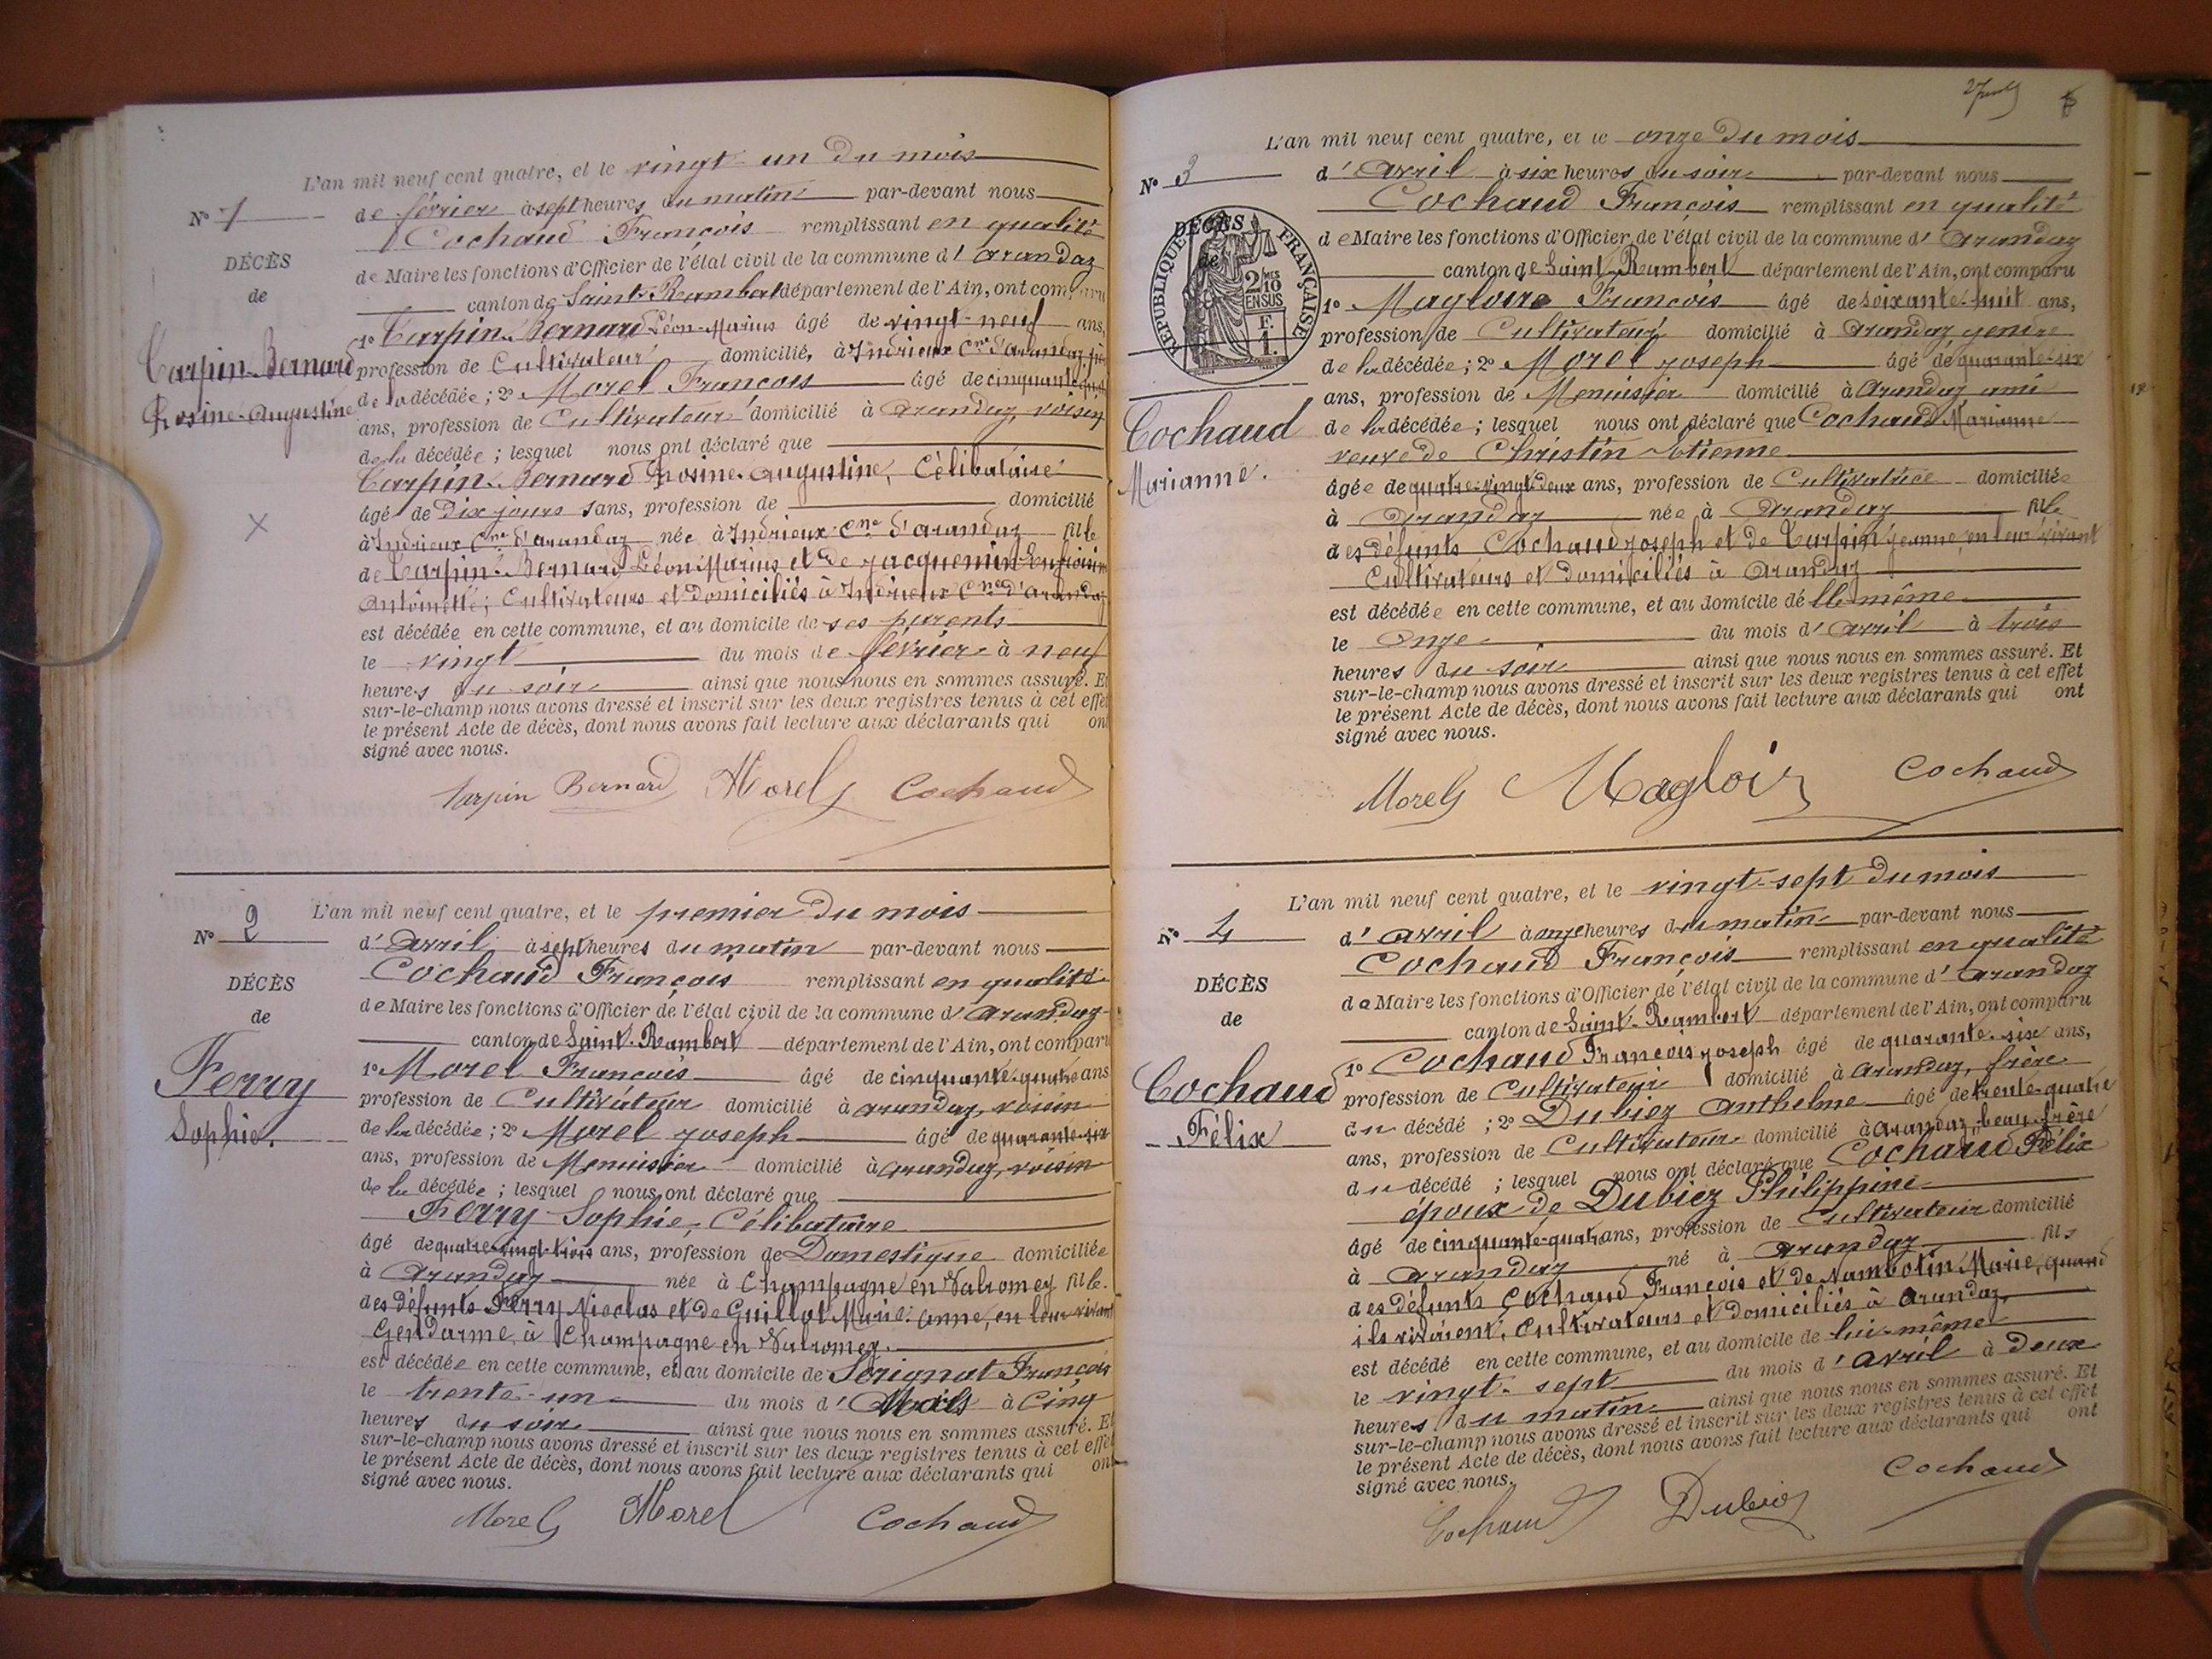 L'an mil neuf cent quatre, et le vingt-un du mois
N° 1
de février à sept heures du matin par-devant nous
Cochaud François remplissant en qualité
DÉCÈS
de Maire les fonctions d'Officier de l'état civil de la commune d'Arandaz
de
canton de Saint-Rambert département de l'Ain, ont comparu
1° Carpin-Bernard Léon-Marius âgé de vingt-neuf ans,
Carpin-Bernard
profession de Cultivateur domicilié, à Indrieux Cne d'Arandaz, père
Rosine-Augustine
de la décédée; 2° Morel François âgé de cinquante-quatre
ans, profession de Cultivateur domicilié à Arandaz, voisin
de la décédée; lesquel nous ont déclaré que
Carpin-Bernard Rosine-Augustine, Célibataire
âgé de dix jours sans, profession de domicilié
à Indrieux Cne d'Arandaz née à Indrieux Cne d'Arandaz fille
de Carpin-Bernard Léon Marius et de Jacquemin
Antoinette; Cultivateurs et domiciliés à Indrieux Cne d'Arandaz
est décédée en cette commune, et au domicile de ses parents
le vingt du mois de février à neuf
heures du soir ainsi que nous nous en sommes assuré. Et
sur-le-champ nous avons dressé et inscrit sur les deux registres tenus à cet effet
le présent Acte de décès, dont nous avons fait lecture aux déclarants qui ont
signé avec nous.
Carpin Bernard Morel Cochaud
L'an mil neuf cent quatre, et le premier du mois
N° 2
d'Avril à sept heures du matin par-devant nous
Cochaud François remplissant en qualité
DÉCÈS
de Maire les fonctions d'Officier de l'état civil de la commune d'Arandaz
de
canton de Saint-Rambert département de l'Ain, ont comparu
1° Morel François âgé de cinquante-quatre ans
Ferry
profession de Cultivateur domicilié à Arandaz, voisin
Sophie.
de la décédée; 2° Morel Joseph âgé de quarante-six
ans, profession de Menuisier domicilié à Arandaz, voisin
de la décédée; lesquel nous ont déclaré que
Ferry Sophie, Célibataire
âgé de quatre-vingt-trois ans, profession de Domestique domiciliée
à Arandaz née à Champagne en Valromey fille.
des défunts Ferry Nicolas et de Guillot Marie-Anne, en leur vivant
Gendarme à Champagne en Valromey.
est décédée en cette commune, et au domicile de Serignat François
le trente-un du mois d' Mars à Cinq
heures du soir ainsi que nous nous en sommes assuré. Et
sur-le-champ nous avons dressé et inscrit sur les deux registres tenus à cet effet
le présent Acte de décès, dont nous avons fait lecture aux déclarants qui ont
signé avec nous.
Morel J Morel Cochaud
L'an mil neuf cent quatre, et le onze du mois
N° 3
d'Avril à six heures du soir par-devant nous
Cochaud François remplissant en qualité
DÉCÈS
de
RÉPUBLIQUE FRANÇAISE
2/10 MES
EN SUS
F.
1.
de Maire les fonctions d'Officier de l'état civil de la commune d'Arandaz
canton de Saint-Rambert département de l'Ain, ont comparu
1° Magloire François âgé de soixante-huit ans,
profession de Cultivateur domicilié à Arandaz, gendre
de la décédée; 2° Morel Joseph âgé de quarante-six
ans, profession de Menuisier domicilié à Arandaz ami
Cochaud
de la décédée; lesquel nous ont déclaré que Cochaud Marianne
veuve de Christin Etienne
Marianne.
âgée de quatre-vingt-deux ans, profession de Cultivatrice domiciliée
à Arandaz née à Arandaz fille
des défunts Cochaud Joseph et de Carpin Jeanne, en leur vivant
Cultivateurs et domiciliés à Arandaz
est décédée en cette commune, et au domicile d'elle-même
le onze du mois d'Avril à trois
heures du soir ainsi que nous nous en sommes assuré. Et
sur-le-champ nous avons dressé et inscrit sur les deux registres tenus à cet effet
le présent Acte de décès, dont nous avons fait lecture aux déclarants qui ont
signé avec nous.
Morel J Magloir Cochaud
L'an mil neuf cent quatre, et le vingt-sept du mois
N° 4
d'Avril à onze heures du matin par-devant nous
Cochaud François remplissant en qualité
DÉCÈS
de Maire les fonctions d'Officier de l'état civil de la commune d'Arandaz
de
canton de Saint-Rambert département de l'Ain, ont comparu
1° Cochaud François Joseph âgé de quarante-six ans,
Cochaud
profession de Cultivateur domicilié à Arandaz, frère
Félix
du décédé; 2° Dubiez Anthelme âgé de trente-quatre
ans, profession de Cultivateur domicilié à Arandaz, beau-frère
du décédé; lesquel nous ont déclaré que Cochaud Félix
époux de Dubiez Philippine
âgé de cinquante-quatre ans, profession de Cultivateur domicilié
à Arandaz né à Arandaz fils
des défunts Cochaud François et de Nambotin Marie, quand
ils vivaient, Cultivateurs et domiciliés à Arandaz,
est décédé en cette commune, et au domicile de lui-même
le vingt-sept du mois d'Avril à Deux
heures du matin ainsi que nous nous en sommes assuré. Et
sur-le-champ nous avons dressé et inscrit sur les deux registres tenus à cet effet
le présent Acte de décès, dont nous avons fait lecture aux déclarants qui ont
signé avec nous.
Cochaud Dubiez Cochaud